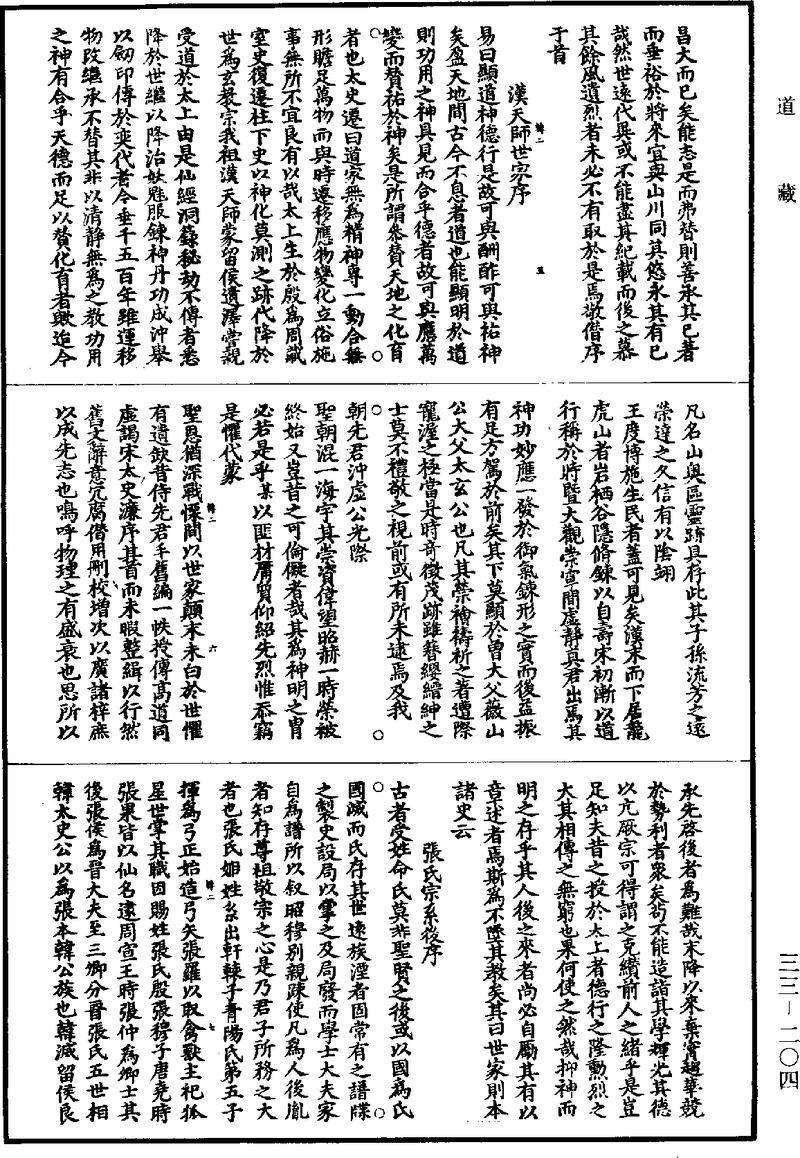 道藏
昌大而已矣能志是而弗替則善承其已著
而垂裕於將來宜與山川同其悠永其有已
哉然世遠代異或不能盡其紀載而後之慕
其餘風遺烈者未必不有取於是焉敬僭序
于首
漢天師世家序
易曰顯道神德行是故可與酬酢可與祐神
矣盈天地間古今不息者道也能顯明於道
則功用之神具見而合乎德者故可與應萬
變而贊祐於神矣是所謂叅贊天地之化育
者也太史遷曰道家無為精神專一動合無
形贍足萬物而與時遷移應物變化立俗施
事無所不宜良有以哉太上生於殷為周藏
室史復遷柱下史以神化莫測之跡代降於
世為玄教宗我祖漢天師蒙留侯遺澤嘗親
受道於太上由是仙經洞籙秘劫不傳者悉
降於世繼以降治妖魅服鍊神丹功成沖舉
以劒印傳於奕代者今垂千五百年雖運移
物改繼承不替其非以清靜無為之教功用
之神有合乎天德而足以贊化育者歟迨今
凡名山奧區靈跡且存此其子孫流芳之遠
榮達之久信有以陰翊
王度博施生民者蓋可見矣漢末而下居龍
虎山者岩栖谷隱脩鍊以自壽宋初漸以道
行稱於時暨大觀崇寧間虛靜真君出焉其
神功妙應一發於御氣鍊形之實而後益振
有足方駕於前矣其下莫顯於曾大父薇山
公大父太玄公也凡其禜禬禱祈之著遭際
寵渥之極當其時奇徵茂跡雖簪纓縉紳之
士莫不禮敬之視前或有所未逮焉及我
朝先君沖虛公光際
聖朝混一海宇其崇資偉望昭赫一時榮被
終始又豈昔之可倫儗者哉其為神明之胄
必若是乎某以匪材孱質仰紹先烈惟忝竊
是懼代蒙
聖恩猶深戰慄間以世家顛末未白於世懼
有遺缺昔侍先君手舊編一帙授傳髙道同
虛謁宋太史濂序其首而未暇整緝以行然
舊文辭意宂腐僭用刪校增次以廣諸梓庶
以成先志也嗚呼物理之有盛衰也思所以
承先啓後者為難哉末降以來棄實趨華競
於勢利者衆矣苟不能造詣其學輝光其德
以亢厥宗可得謂之克纘前人之緒乎是豈
足知夫昔之授於太上者德行之隆勳烈之
大其相傳之無窮也果何使之然哉抑神而
明之存乎其人後之來者尚必自勵其有以
章述者焉斯為不墜其教矣其曰世家則本
諸史云
張氏宗系後序
古者受姓命氏莫非聖賢之後或以國為氏
國滅而氏存其世遠族湮者固常有之譜牒
之製史設局以掌之及局廢而學士大夫家
自為譜所以叙昭穆別親疎使凡為人後胤
者知存尊祖敬宗之心是乃君子所務之大
者也張氏姬姓糸出軒轅子青陽氏第五子
揮為弓正始造弓矢張羅以取禽獸主祀狐
星世掌其職因賜姓張氏殷張穆子唐堯時
張果皆以仙名逮周宣王時張仲為卿士其
後張侯為晉大夫至三卿分晉張氏五世相
韓太史公以為張本韓公族也韓滅留侯良
三三—二〇四